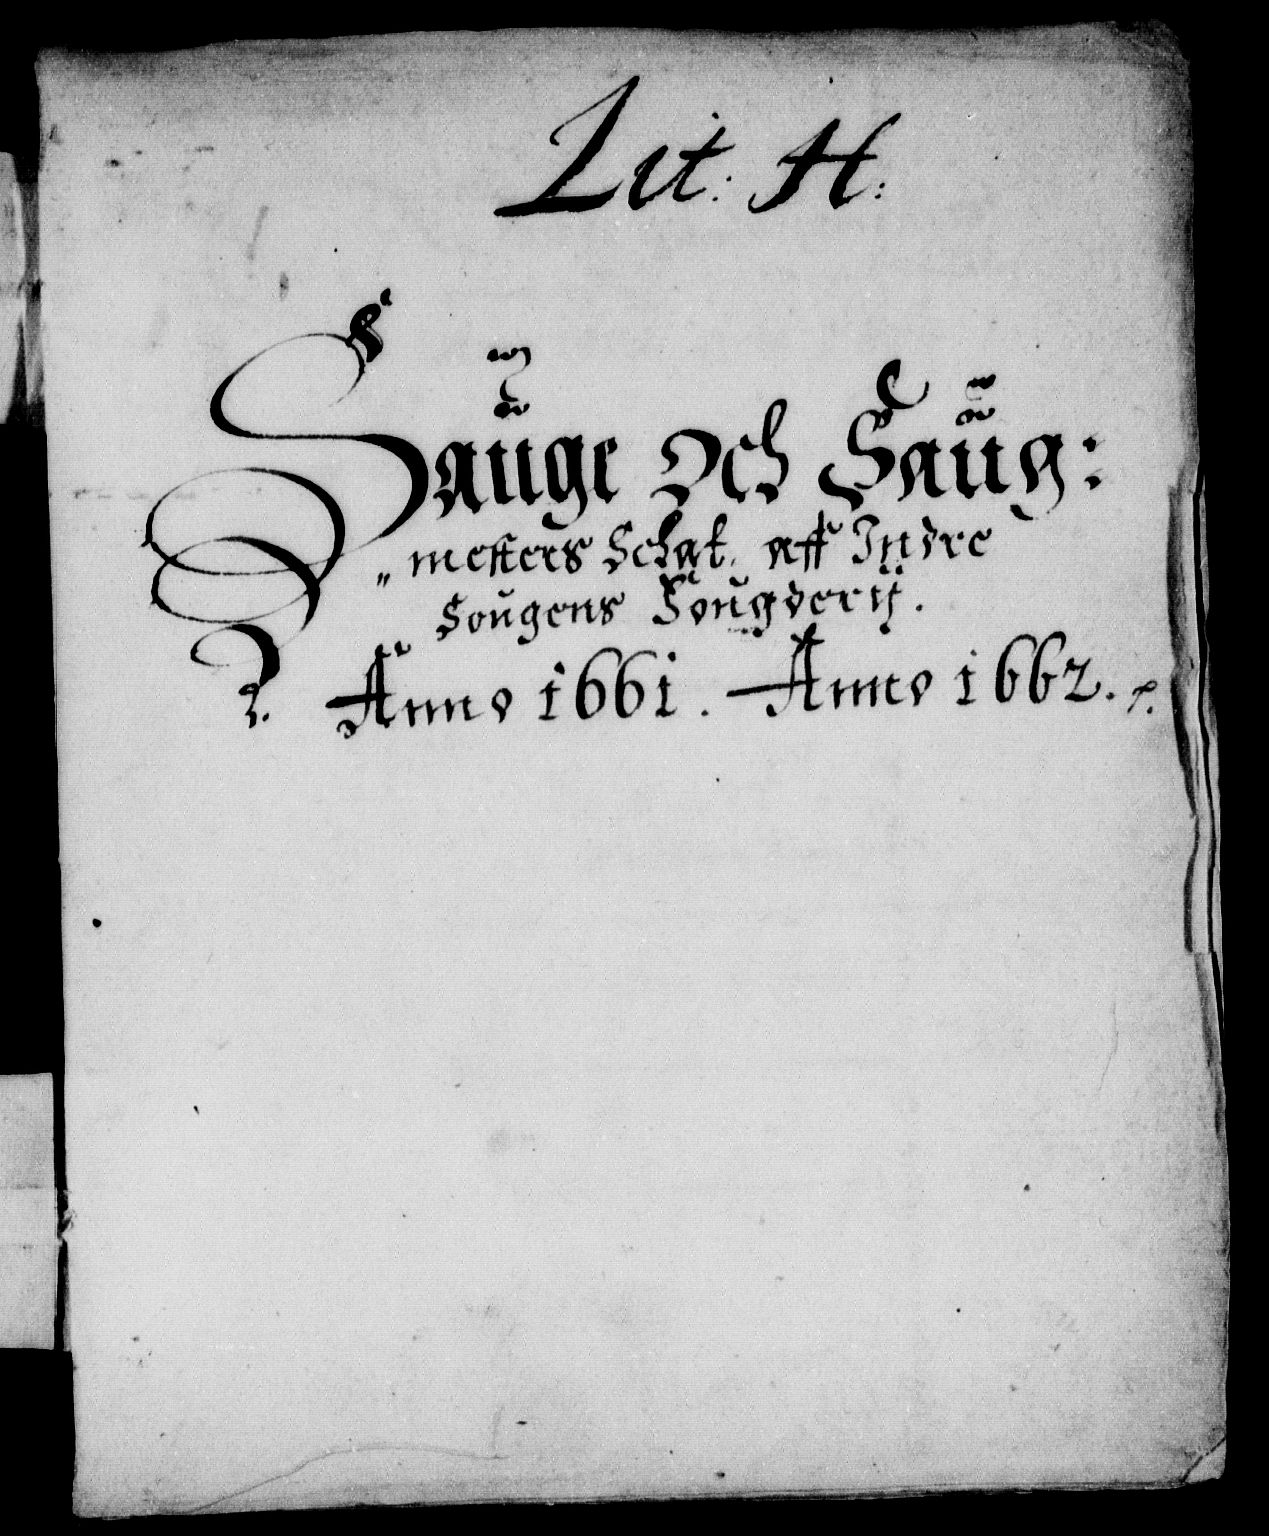 Lit: H:
Sauge och Saug:
„mesters Schat, aff Indre
Sougens Fougderij.
Anno 1661. Anno 1662.